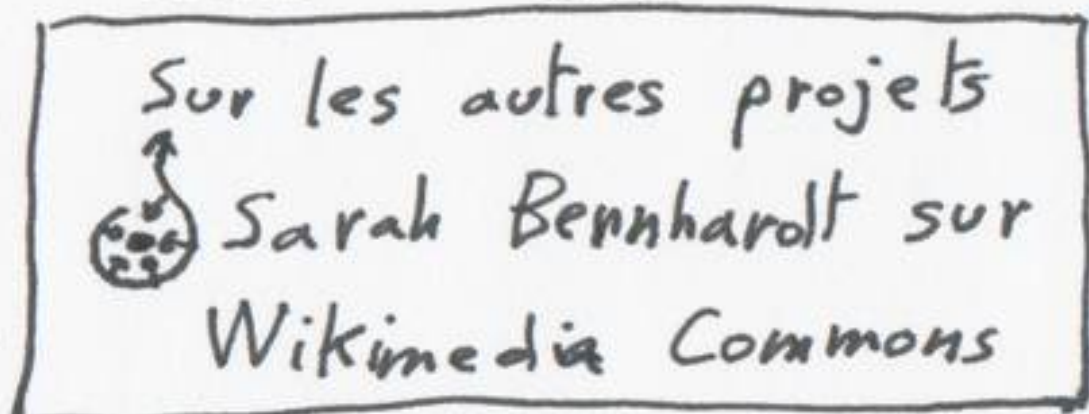 Sur les autres projets
Sarah Bernhardt sur
Wikimedia Commons